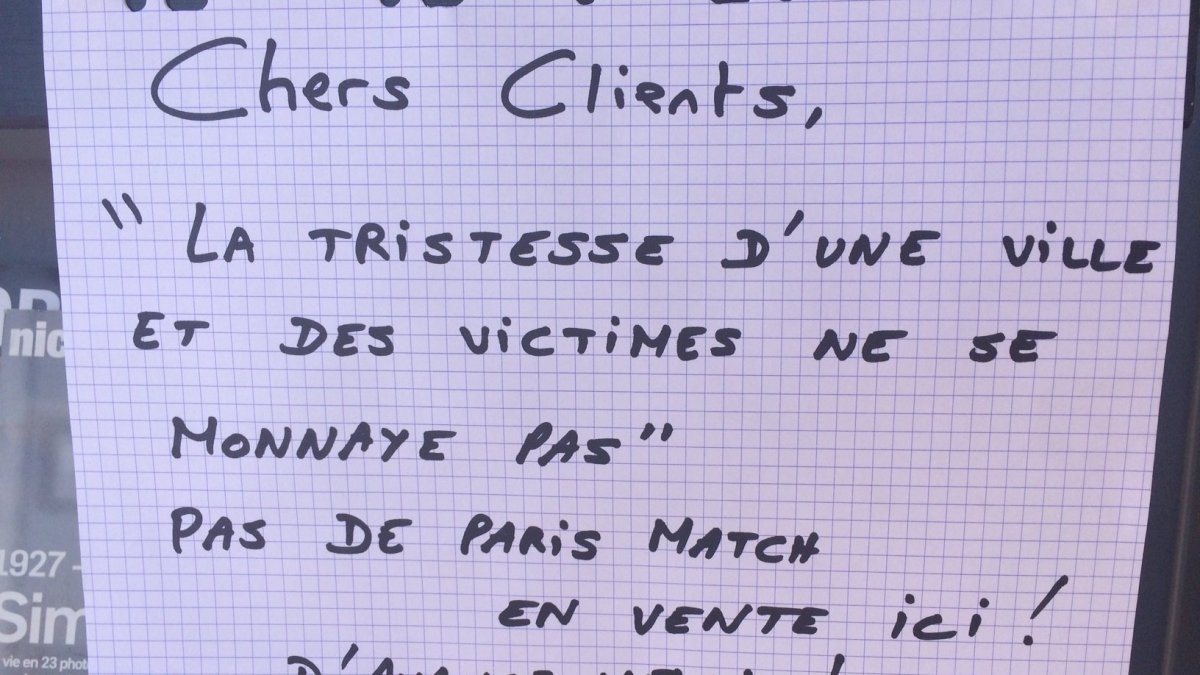 Chers Clients,
" LA TRISTESSE D'UNE VILLE
ET DES VICTIMES NE SE
MONNAYE PAS"
PAS DE PARIS MATCH
EN VENTE ICI !
nic
1927 -
Sim
vie en 23 phot